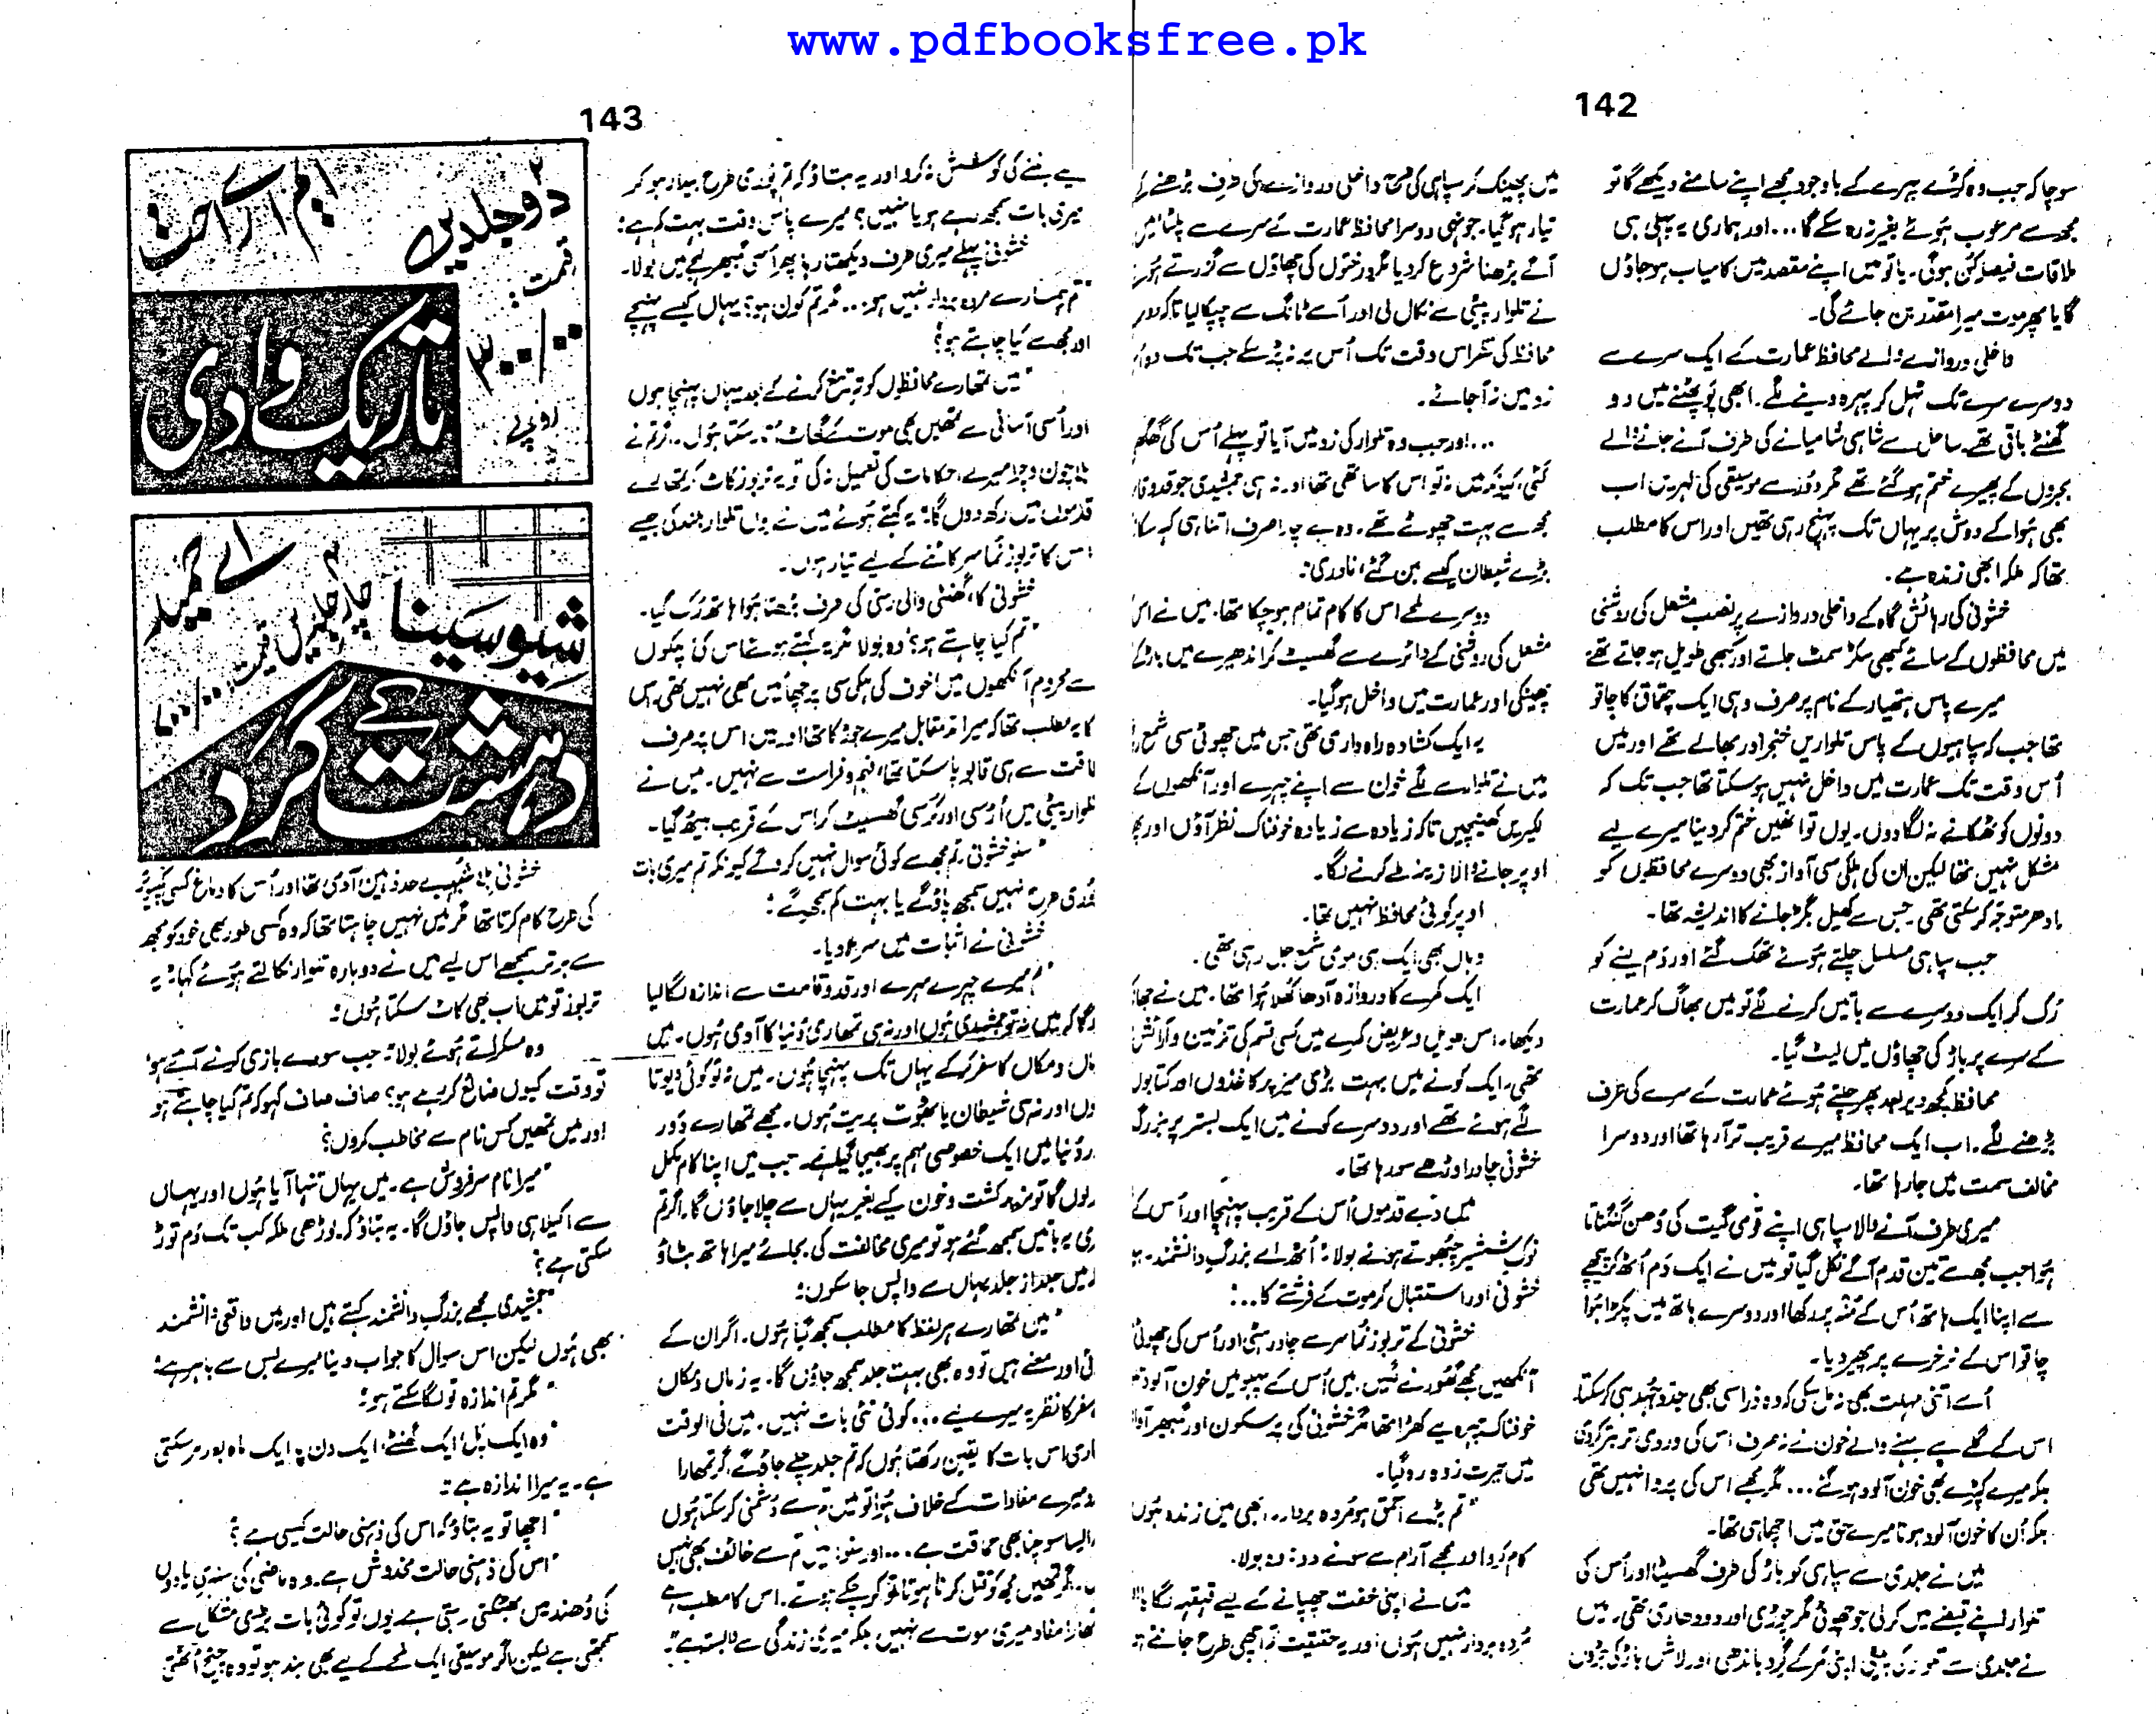 www.pdfbooksfree.pk
142
سوچا کہ جب وہ کڑے پہرے کے باوجود مجھے اپنے سامنے دیکھے گا تو
مجھ سے مرعوب ہوئے بغیر نہ رہ سکے گا... اور ہماری یہ پہلی ہی
ملاقات فیصلہ کن ہوگی۔ یا تو میں اپنے مقصد میں کامیاب ہو جاؤں
گا یا پھر موت میرا مقدر بن جائے گی۔
داخلی دروازے والے محافظ عمارت کے ایک سرے سے
دوسرے سرے تک ٹہل کر پہرہ دینے لگے۔ ابھی پَو پھٹنے میں دو
گھنٹے باقی تھے۔ ساحل سے شاہی شامیانے کی طرف آنے جانے والے
بجروں کے پھیرے ختم ہو گئے تھے مگر دُور سے موسیقی کی لہریں اب
بھی ہوا کے دوش پر یہاں تک پہنچ رہی تھیں اور اس کا مطلب
تھا کہ ملکہ ابھی زندہ ہے۔
خشونی کی رہائش گاہ کے داخلی دروازے پر نصب مشعل کی روشنی
میں محافظوں کے سائے کبھی سکڑ سمٹ جاتے اور کبھی طویل ہو جاتے تھے۔
میرے پاس ہتھیار کے نام پر صرف وہی ایک چقماق کا چاقو
تھا جب کہ سپاہیوں کے پاس تلواریں خنجر اور بھالے تھے اور میں
اُس وقت تک عمارت میں داخل نہیں ہو سکتا تھا جب تک کہ
دونوں کو ٹھکانے نہ لگا دوں۔ یوں تو انھیں ختم کر دینا میرے لیے
مشکل نہیں تھا لیکن ان کی ہلکی سی آواز بھی دوسرے محافظوں کو
ادھر متوجہ کر سکتی تھی۔ جس سے کھیل بگڑ جانے کا اندیشہ تھا۔
جب سپاہی مسلسل چلتے ہوئے تھک گئے اور دَم لینے کو
رُک کر ایک دوسرے سے باتیں کرنے لگے تو میں بھاگ کر عمارت
کے سرے پر باڑ کی چھاؤں میں لیٹ گیا۔
محافظ کچھ دیر بعد پھر چلتے ہوئے عمارت کے سرے کی طرف
بڑھنے لگے۔ اب ایک محافظ میرے قریب تر آ رہا تھا اور دوسرا
مخالف سمت میں جا رہا تھا۔
میری طرف آنے والا سپاہی اپنے قومی گیت کی دُھن گنگناتا
ہوا جب مجھ سے تین قدم آگے نکل گیا تو میں نے ایک دَم اُٹھ کر پیچھے
سے اپنا ایک ہاتھ اُس کے منہ پر رکھا اور دوسرے ہاتھ میں پکڑا ہوا
چاقو اس کے نرخرے پر پھیر دیا۔
اُسے اتنی مہلت بھی نہ مل سکی کہ وہ ذرا سی بھی جدوجہد ہی کر سکتا۔
اس کے گلے سے بہنے والے خون نے نہ صرف اس کی وردی تر بتر کر دی
بلکہ میرے کپڑے بھی خون آلود ہو گئے... مگر مجھے اس کی پروا نہیں تھی
بلکہ اُن کا خون آلود ہونا میرے حق میں اچھا ہی تھا۔
میں نے جلدی سے سپاہی کو باڑ کی طرف گھسیٹا اور اُس کی
تلوار اپنے قبضے میں کر لی جو چھوٹی مگر چوڑی اور دو دھاری تھی۔ میں
نے جلدی سے پیٹی اپنی کمر کے گرد باندھی اور لاش باڑ کی جڑوں
میں پھینک کر سپاہی کی طرح داخلی دروازے کی طرف بڑھنے کے
تیار ہو گیا۔ جونہی دوسرا محافظ عمارت کے سرے سے پلٹا میں
آگے بڑھنا شروع کر دیا مگر درختوں کی چھاؤں سے گزرتے ہوئے
نے تلوار پیٹی سے نکال لی اور اُسے ٹانگ سے چپکا لیا تاکہ دوسر
محافظ کی نظر اس وقت تک اُس پر نہ پڑ سکے جب تک وہ
زد میں نہ آ جائے۔
... اور جب وہ تلوار کی زد میں آیا تو پہلے اُس کی گھگھ
گئی، کیونکہ میں نہ تو اس کا ساتھی تھا اور نہ ہی جمشیدی جو قد و قا
مجھ سے بہت چھوٹے تھے۔ وہ بے چارا صرف اتنا ہی کہہ سکا
بڑے شیطان کیسے بن گئے، نادری؟
دوسرے لمحے اس کا کام تمام ہو چکا تھا۔ میں نے اس
مشعل کی روشنی کے دائرے سے گھسیٹ کر اندھیرے میں باڑ کے
پھینکی اور عمارت میں داخل ہو گیا۔
یہ ایک کشادہ راہ داری تھی جس میں چھوٹی سی شمع
میں نے تلوار سے لگے خون سے اپنے چہرے اور آنکھوں کے
لکیریں کھینچیں تاکہ زیادہ سے زیادہ خوفناک نظر آؤں اور پھر
اوپر جانے والا زینہ طے کرنے لگا۔
اوپر کوئی محافظ نہیں تھا۔
وہاں بھی ایک ہی مومی شمع جل رہی تھی۔
ایک کمرے کا دروازہ آدھا کھلا ہوا تھا۔ میں نے جھا
دیکھا۔ اس طویل و عریض کمرے میں کسی قسم کی تزئین و آرائش
تھی۔ ایک کونے میں بہت بڑی میز پر کاغذوں اور کتابوں
لگے ہوئے تھے اور دوسرے کونے میں ایک بستر پر بزرگ
خشونی چادر اوڑھے سو رہا تھا۔
میں دبے قدموں اُس کے قریب پہنچا اور اُس کے
نوک شمشیر چبھوتے ہوئے بولا: اُٹھ اے بزرگ دانشمند۔
خشونی اور استقبال کر موت کے فرشتے کا...:
خشونی کے تربوز نما سر سے چادر ہٹی اور اُس کی چھوٹی
آنکھیں مجھے گھورنے لگیں۔ میں اُس کے پہلو میں خون آلود
خوفناک چہرہ لیے کھڑا تھا مگر خشونی کی پُرسکون اور گمبھیر آوا
میں حیرت زدہ رہ گیا۔
تم بڑے احمق ہو مُردہ بردار... ابھی میں زندہ ہوں
کام کرو اور مجھے آرام سے سونے دو: وہ بولا۔
میں نے اپنی خفت چھپانے کے لیے قہقہہ لگایا
مُردہ بردار نہیں ہوں اور یہ حقیقت تم اچھی طرح جانتے
143
بننے کی کوشش نہ کرو اور یہ بتاؤ کہ تم پوری طرح بیدار ہو کر
میری بات سمجھ رہے ہو یا نہیں؟ میرے پاس وقت بہت کم ہے:
خشونی پہلے میری طرف دیکھتا رہا پھر اُسی گمبھیر لہجے میں بولا۔
تم ہمارے مردہ بردار نہیں ہو... مگر تم کون ہو؟ یہاں کیسے پہنچے
اور مجھ سے کیا چاہتے ہو؟
میں تمھارے محافظوں کو تہِ تیغ کرنے کے بعد یہاں پہنچا ہوں
اور اُسی آسانی سے تمھیں بھی موت کے گھاٹ اُتار سکتا ہوں۔ اگر تم نے
بلا چون و چرا میرے احکامات کی تعمیل نہ کی تو یہ تربوز کاٹ کر تمھارے
قدموں میں رکھ دوں گا: یہ کہتے ہوئے میں نے یوں تلوار بلند کی جیسے
اس کا تربوز نما سر کاٹنے کے لیے تیار ہوں۔
خشونی کا، گھنٹی والی رسی کی طرف بڑھتا ہوا ہاتھ رُک گیا۔
تم کیا چاہتے ہو؟ وہ بولا مگر یہ کہتے ہوئے اس کی پلکوں
سے محروم آنکھوں میں خوف کی ہلکی سی پرچھائیں بھی نہیں تھی۔ جس
کا یہ مطلب تھا کہ میرا مد مقابل میرے جوڑ کا تھا اور میں اس پر صرف
طاقت سے ہی قابو پا سکتا تھا، فہم و فراست سے نہیں۔ میں نے
تلوار پیٹی میں اُڑسی اور کرسی گھسیٹ کر اس کے قریب بیٹھ گیا۔
سنو خشونی، تم مجھ سے کوئی سوال نہیں کرو گے کیونکہ تم میری بات
پوری طرح نہیں سمجھ پاؤ گے یا بہت کم سمجھو گے:
خشونی نے اثبات میں سر ہلا دیا۔
تم میرے چہرے مہرے اور قد و قامت سے اندازہ لگا لیا
ہوگا کہ میں نہ تو جمشیدی ہوں اور نہ ہی تمھاری دُنیا کا آدمی ہوں۔ میں
زماں و مکاں کا سفر کر کے یہاں تک پہنچا ہوں۔ میں نہ تو کوئی دیوتا
ہوں اور نہ ہی شیطان یا بھوت پریت ہوں۔ مجھے تمھارے دَور
دُنیا میں ایک خصوصی مہم پر بھیجا گیا ہے۔ جب میں اپنا کام مکمل
کر لوں گا تو مزید کشت و خون کے بغیر یہاں سے چلا جاؤں گا۔ اگر تم
میری یہ باتیں سمجھ گئے ہو تو میری مخالفت کی بجائے میرا ہاتھ بٹاؤ
کہ میں جلد از جلد یہاں سے واپس جا سکوں:
میں تمھارے ہر لفظ کا مطلب سمجھ گیا ہوں۔ اگر ان کے
کوئی اور معنے ہیں تو وہ بھی بہت جلد سمجھ جاؤں گا۔ یہ زماں و مکاں
سفر کا نظریہ میرے لیے... کوئی نئی بات نہیں۔ میں فی الوقت
تمھاری اس بات کا یقین رکھتا ہوں کہ تم جلد چلے جاؤ گے، اگر تمھارا
میرے مفادات کے خلاف ہوا تو میں تم سے دشمنی کر سکتا ہوں
ایسا سوچنا بھی حماقت ہے... اور سنو: میں تم سے خائف بھی نہیں
اگر تمھیں مجھ کو قتل کرنا ہوتا تو کر چکے ہوتے۔ اس کا مطلب ہے
تمھارا مفاد میری موت سے نہیں بلکہ میری زندگی سے وابستہ ہے۔
۲
دو جلدیں
ایم اے راحت
قیمت:
۳۰۰/۰۰
روپے
تاریک وادی
اے حمید
۴
چار جلدیں قیمت
شیو سینا
کے
دہشت گرد
خشونی بلا شبہ بے حد ذہین آدمی تھا اور اُس کا دماغ کسی کمپیوٹر
کی طرح کام کرتا تھا مگر میں نہیں چاہتا تھا کہ وہ کسی طور بھی خود کو مجھ
سے برتر سمجھے اس لیے میں نے دوبارہ تلوار نکالتے ہوئے کہا: یہ
تربوز تو میں اب بھی کاٹ سکتا ہوں:
وہ مسکراتے ہوئے بولا: جب سودے بازی کرنے آئے ہو،
تو وقت کیوں ضائع کر رہے ہو؟ صاف صاف کہو کہ تم کیا چاہتے ہو
اور میں تمھیں کس نام سے مخاطب کروں؟
میرا نام سرفروش ہے۔ میں یہاں تنہا آیا ہوں اور یہاں
سے اکیلا ہی واپس جاؤں گا۔ یہ بتاؤ کہ بوڑھی ملکہ کب تک دَم توڑ
سکتی ہے؟
جمشیدی مجھے بزرگ دانشمند کہتے ہیں اور میں واقعی دانشمند
بھی ہوں لیکن اس سوال کا جواب دینا میرے بس سے باہر ہے:
مگر تم اندازہ تو لگا سکتے ہو:
وہ ایک پل، ایک گھنٹے، ایک دن یا ایک ماہ بعد مر سکتی
ہے۔ یہ میرا اندازہ ہے:
اچھا تو یہ بتاؤ کہ اس کی ذہنی حالت کیسی ہے؟
اس کی ذہنی حالت مخدوش ہے۔ وہ ماضی کی سنہری یادوں
کی دُھند میں بھٹکتی رہتی ہے یوں تو کوئی بات بڑی مشکل سے
سمجھتی ہے لیکن اگر موسیقی ایک لمحے کے لیے بھی بند ہو تو وہ چیخ اُٹھتی